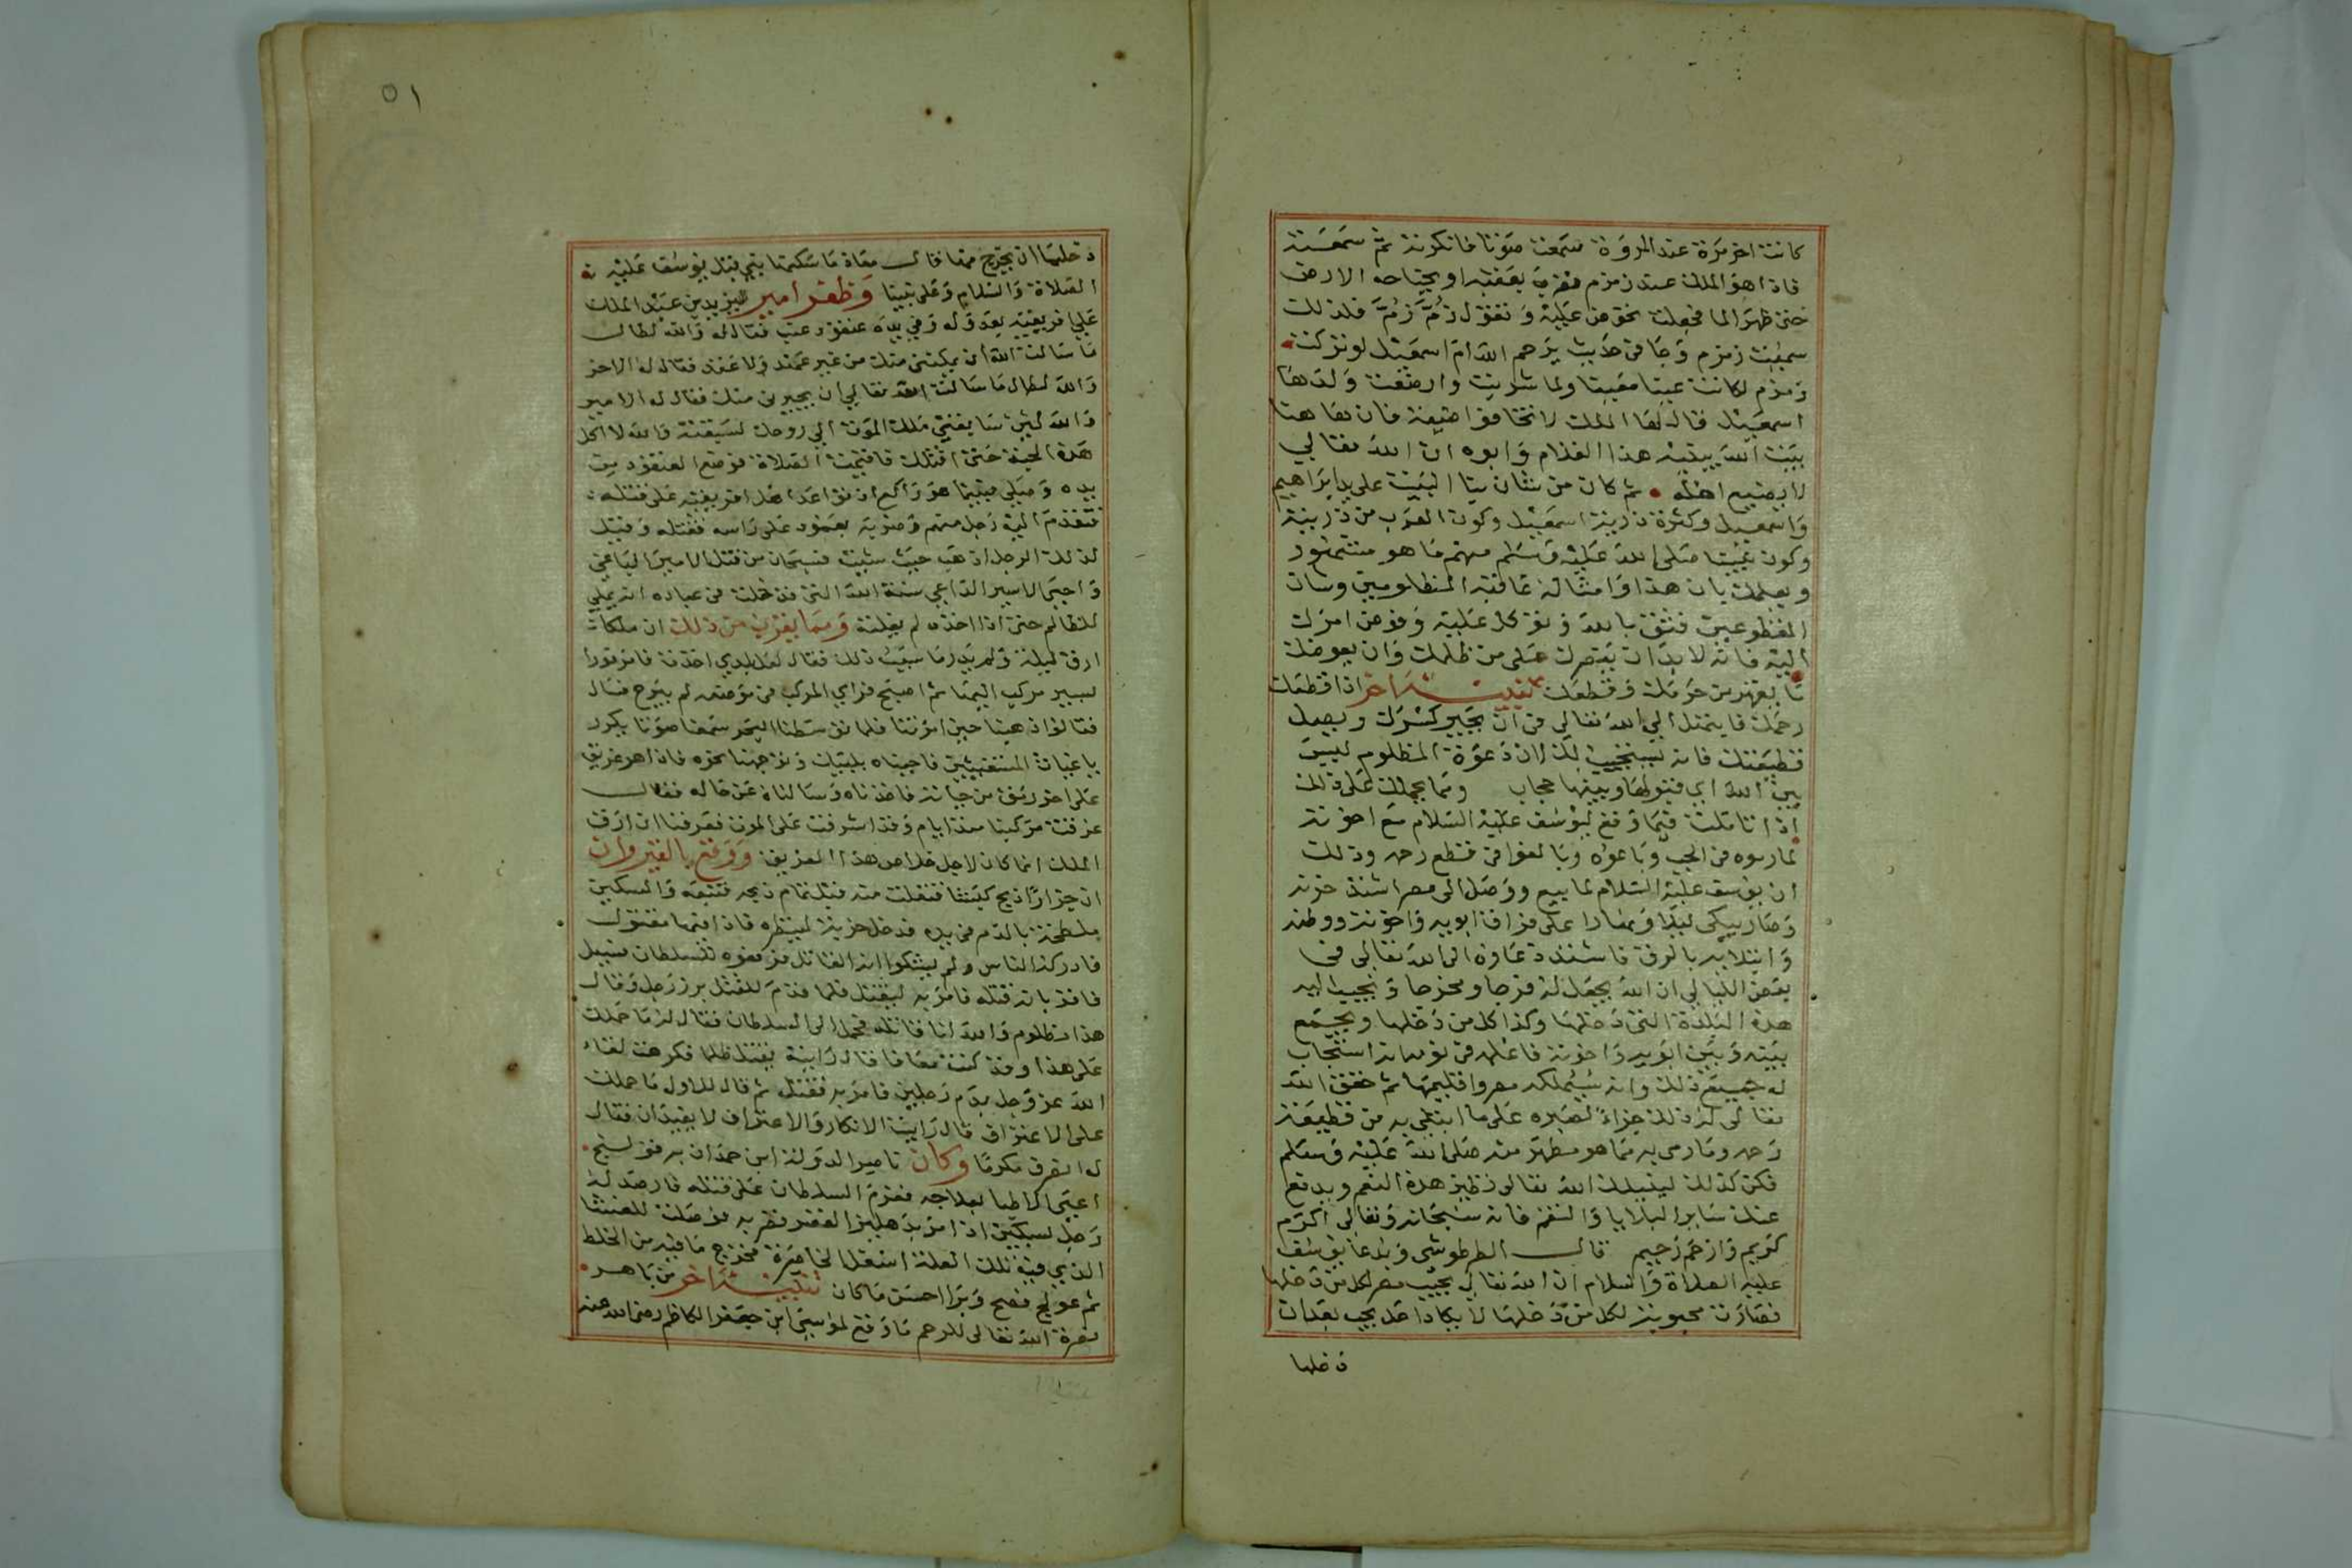 كانت اخر مرة عند المروة سمعت صوتا فانكرته ثم سمعته
فاذا هو الملك عند زمزم فضرب بعقبه او بجناحه الارض
حتى ظهر الما فجعلت تحوض عليه وتقول زُمَّ زُمَّ فلذلك
سميت زمزم وجا في حديث يرحم الله ام اسمعيل لو تركت
زمزم لكانت عينا معينا ولما شربت وارضعت ولدها
اسمعيل قال لها الملك لا تخافوا ضيعة فان هاهنا
بيت الله يبنيه هذا الغلام وابوه ان الله تعالي
لا يضيع اهله ثم كان من شان بنا البيت على يد ابراهيم
واسمعيل وكثرة ذرية اسمعيل وكون العرب من ذريته
وكون نبينا صلى الله عليه وسلم منهم ما هو مشهور
ويعلمك بان هذا وامثاله عاقبة المظلومين وشان
المقطوعين فثق بالله وتوكل عليه وفوض امرك
اليه فانه لابد ان ينصرك على من ظلمك وان يعوضك
ما يقهر من حرمك وقطعك تنبيه اخر اذا قطعك
رحمك فابتهل الي الله تعالي في ان يجبر كسرك ويصل
قطيعتك فانه يستجيب لك لان دعوة المظلوم ليس
بين الله اي قبولها وبينها حجاب ومما يحملك على ذلك
اذا تاملت فيما وقع ليوسف عليه السلام مع اخوته
لما رموه في الجب وباعوه وبالغوا في قطع رحمه وذلك
ان يوسف عليه السلام لما بيع ووصل الى مصر اشتد حزنه
وصار يبكي ليلا ونهارا على فراق ابويه واخوته ووطنه
وابتلايه بالرق فاشتد دعاوه الى الله تعالى في
بعض الليالي ان الله يجعل له فرجا ومخرجا ويحبب اليه
هذه البلدة التي دخلها وكذا كل من دخلها ويجمع
بينه وبين ابويه واخوته فاعلم في نومه انه استجاب
له جميع ذلك وانه سيملكه مصر واقليمها ثم حقق الله
تعالى له ذلك جزاءً لصبره على ما ابتلي به من قطيعة
رحمه وما رمى به مما هو مطهر منه صلى الله عليه وسلم
فكن كذلك لينيلك الله تعالى نظير هذه النعم ويدفع
عنك ساير البلايا والنقم فانه سبحانه وتعالى اكرم
كريم وارحم رحيم قال الطرطوشى وبدعا يوسف
عليه الصلاة والسلام ان الله تعالى يحبب مصر لكل من دخلها
فصارت محبوبة لكل من دخلها لا يكاد احد يحب بعد ان
دخلها
٥١
دخلها ان يخرج منها قال معاذ ما سكنها نبي قبل يوسف عليه
الصلاة والسلام وعلى نبينا وظفر امير ليزيد بن عبد الملك
على افريقية بعدو له وفي يده عنقود عنب فقال له والله لطال
ما سالت الله ان يمكنني منك من غير عهد ولا عقد فقال له الاخر
والله لطال ما سالت الله تعالي ان يجيرني منك فقال له الامير
والله لين سابقني ملك الموت الي روحك لسبقته والله لا اكل
هذه الحبة حتى اقتلك فاقيمت الصلاة فوضع العنقود من
يده وصلى فبينما هو راكع ان تواعد اهل افريقية على قتله
فتقدم اليه رجل منهم وضربه بعمود على راسه فقتله وقيل
لذلك الرجل اذهب حيث شيت فسبحان من قتل الامير الباغي
واحيى الاسير الداعي سنة الله التى قد خلت في عباده انه يملي
للظالم حتى اذا اخذه لم يفلته ومما يقرب من ذلك ان ملكا
ارق ليلة ولم يدر ما سبب ذلك فقال لعل الذي اخذت فامر فورا
لسير مركب اليها ثم اصبح فراي المركب في موضعه لم يبرح فسال
فقالوا ذهبنا حين امرتنا فلما توسطنا البحر سمعنا صوتا يكرر
يا غياث المستغيثين فاجبناه بلبيك وتوجهنا نحوه فاذا هو غريق
على اخر رمق من حياته فاخذناه وسالناه عن حاله فقال
غرقت مركبنا منذ ايام وقد اشرفت على الموت فعرفنا ان ارق
الملك انما كان لاجل خلاص هذا الغريق ووقع بالقيروان
ان جزارا ذبح كبشا فتفلت منه قبل تمام ذبحه فتبعه والسكين
ملطخة بالدم في يده فدخل خربة لينظره فاذا فيها مقتول
فادركه الناس ولم يشكوا انه القاتل فرفعوه للسلطان فسيل
فاقر بانه قتله فامر به ليقتل فلما قدم للقتل برز رجل وقال
هذا مظلوم والله انا قاتله فحمل الى السلطان فقال له ما حملك
على هذا وقد كنت معافا قال رايته يقتل ظلما فكرهت لقاء
الله عز وجل بدم رجلين فامر به فقتل ثم قال للاول ما حملك
على الاعتراف قال رايت الانكار والاعتراف لا يفيدان فقال
له انصرف مكرما وكان ناصر الدولة ابن حمدان به قولنج
اعيى الاطبا بعلاجه فعزم السلطان على قتله فارصد له
رجل بسكين اذا مر بدهليز القصر فضربه فوصلت للعشا
الذي فيه تلك العلة اسفل الخاصرة فخرج ما فيه من الخلط
ثم عولج فصح وبرا احسن ما كان تنبيه اخر من باهر
نصرة الله تعالى للرحم ما وقع لموسى ابن جعفر الكاظم رضى الله عنه